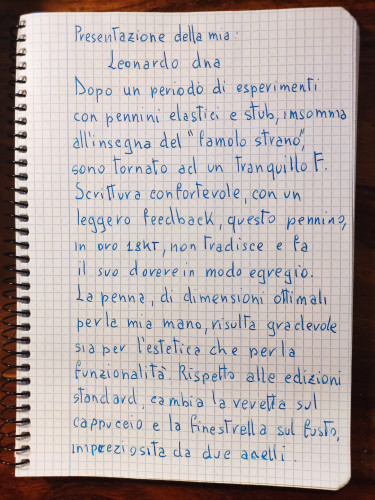 Presentazione della mia:
Leonardo dna
Dopo un periodo di esperimenti
con pennini elastici e stub, insomma
all'insegna del "famolo strano",
sono tornato ad un tranquillo F.
Scrittura confortevole, con un
leggero feedback, questo pennino,
in oro 18KT, non tradisce e fa
il suo dovere in modo egregio.
La penna, di dimensioni ottimali
per la mia mano, risulta gradevole
sia per l'estetica che per la
funzionalità. Rispetto alle edizioni
standard, cambia la veretta sul
cappuccio e la finestrella sul fusto,
impreziosita da due anelli.